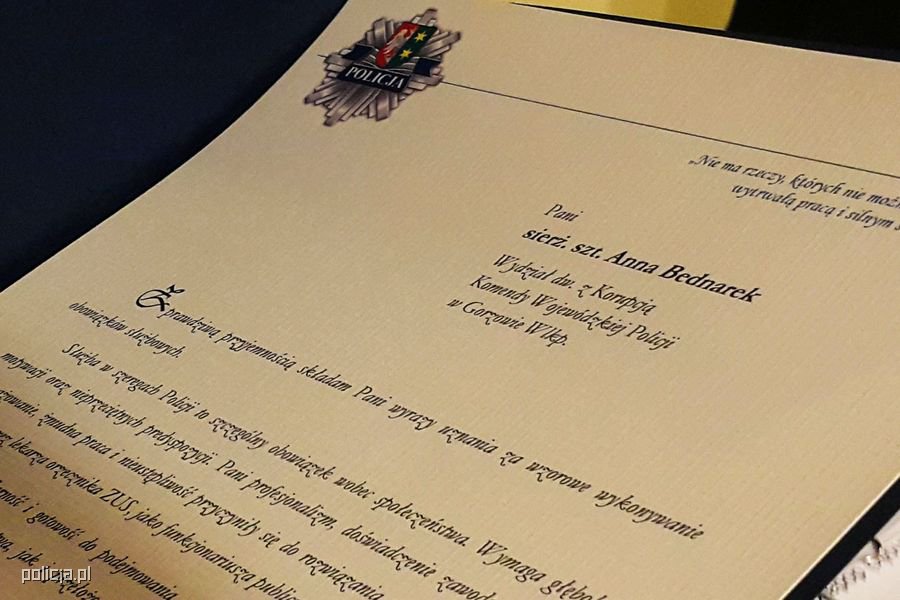 POLICJA
„Nie ma rzeczy, których nie
wytrwałą pracą i silnym
Pani
sierż. szt. Anna Bednarek
Wydział dw. z Korupcją
Komendy Wojewódzkiej Policji
w Gorzowie Wlkp.
Z prawdziwą przyjemnością składam Pani wyrazy uznania za wzorowe wykonywanie
obowiązków służbowych.
Służba w szeregach Policji to szczególny obowiązek wobec społeczeństwa. Wymaga
motywacji oraz nieprzeciętnych predyspozycji. Pani profesjonalizm, doświadczenie
żmudna praca i nieustępliwość przyczyniły się do rozwiązania
lekarza orzecznika ZUS, jako funkcjonariusza
i gotowość do podejmowania
jak
policja.pl